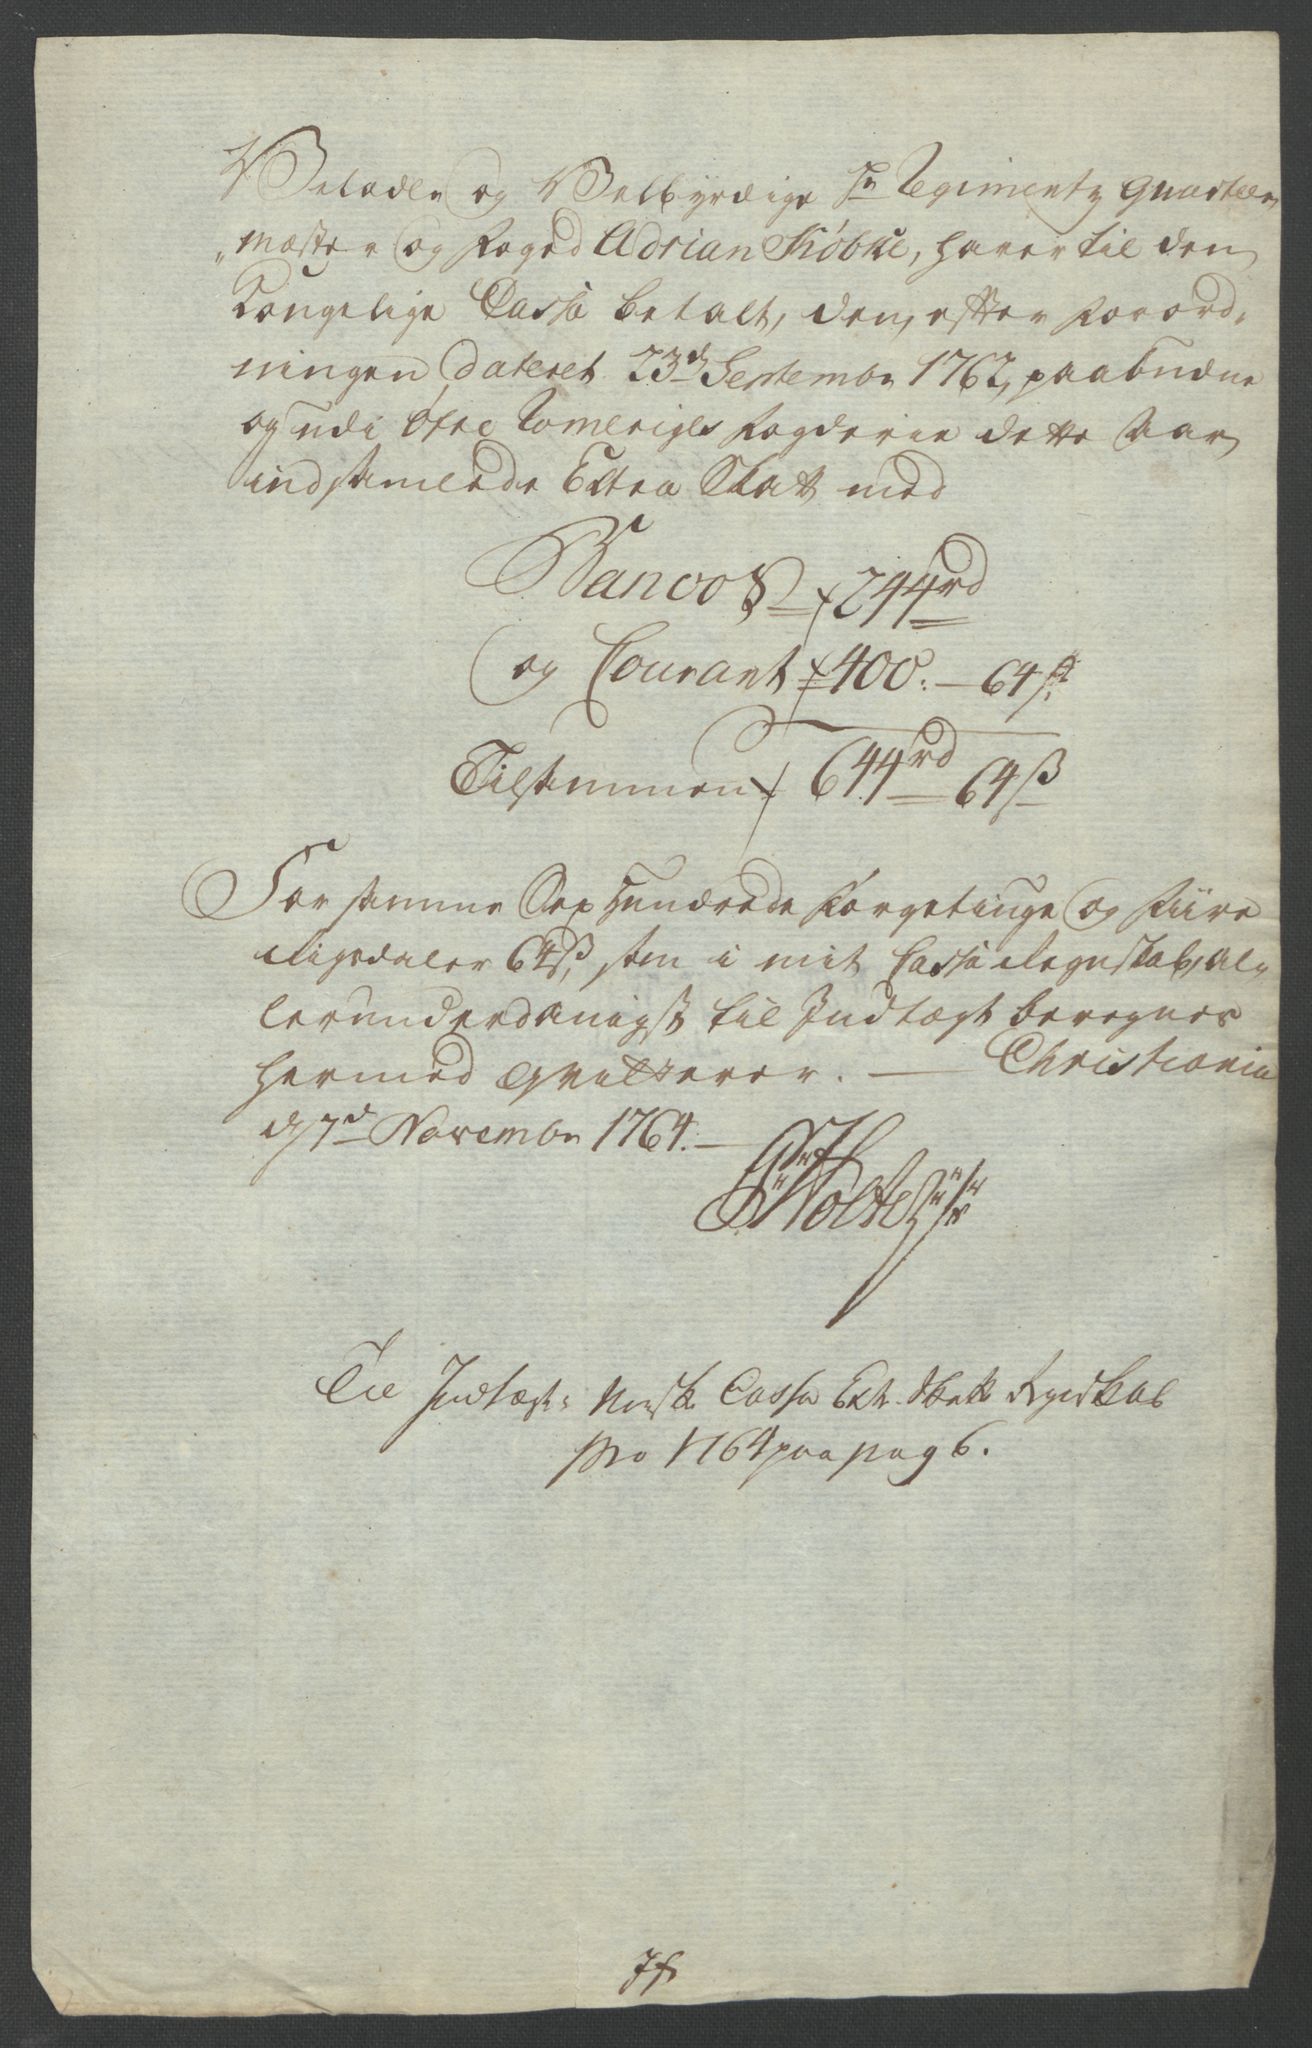 Velædle og Velbyrdige Hr Regiments Quarteer,
„mæster og Foged Adrian Købke, haver til den
Kongelige Cassa betalt, den, efter Forord„
ningen dateret 23d Septembr 1762, paabudne
og udi Øvre Romeriges Fogderie dette Aar
indsamlede Extra Skatt med
Banco S 244rd
og Courant 400. — 64 ß
Tilsammen 644rd 64 ß
For samme Sex Hundrede Førgetiuge og Fiire
Rigsdaler 64 ß, som i mit Cassa Regnskab, al„
lerunderdanigst til Indtægt beregnes
hermed qvitterer. — Christiania
d 7d Novembr 1764. —
Holte
Til Indtægt i Norsk Cassa Ext. Skatt Regnskab
pro 1764 paa pag 6.